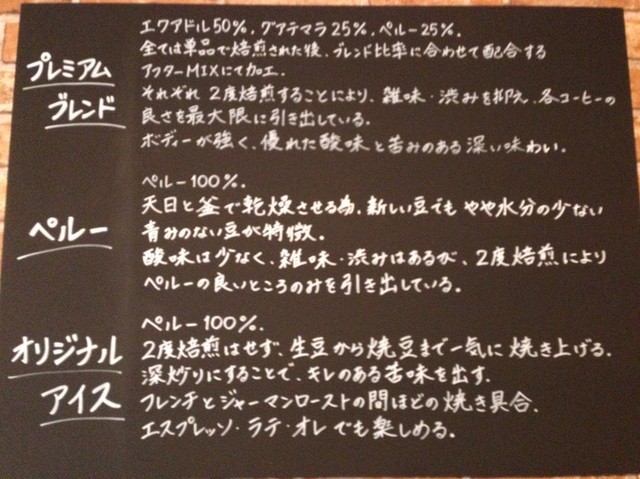 プレミアム
ブレンド
エクアドル50%, グアテマラ25%, ペルー25%.
全ては単品で焙煎された後、ブレンド比率に合わせて配合する
アフターMIXにて加工.
それぞれ 2度焙煎することにより、雑味・渋みを抑え、各コーヒーの
良さを最大限に引き出している.
ボディーが強く、優れた酸味と苦みのある深い味わい.
ペルー
ペルー100%.
天日と釜で乾燥させる為、新しい豆でも やや水分の少ない
青みのない豆が特徴.
酸味は少なく、雑味・渋みはあるが、2度焙煎により
ペルーの良いところのみを引き出している.
オリジナル
アイス
ペルー100%.
2度焙煎はせず、生豆から焼豆まで一気に焼き上げる.
深炒りにすることで、キレのある苦味を出す.
フレンチとジャーマンローストの間ほどの焼き具合.
エスプレッソ・ラテ・オレでも楽しめる.